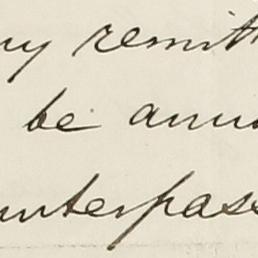 ny remitt
be annu
unterpass